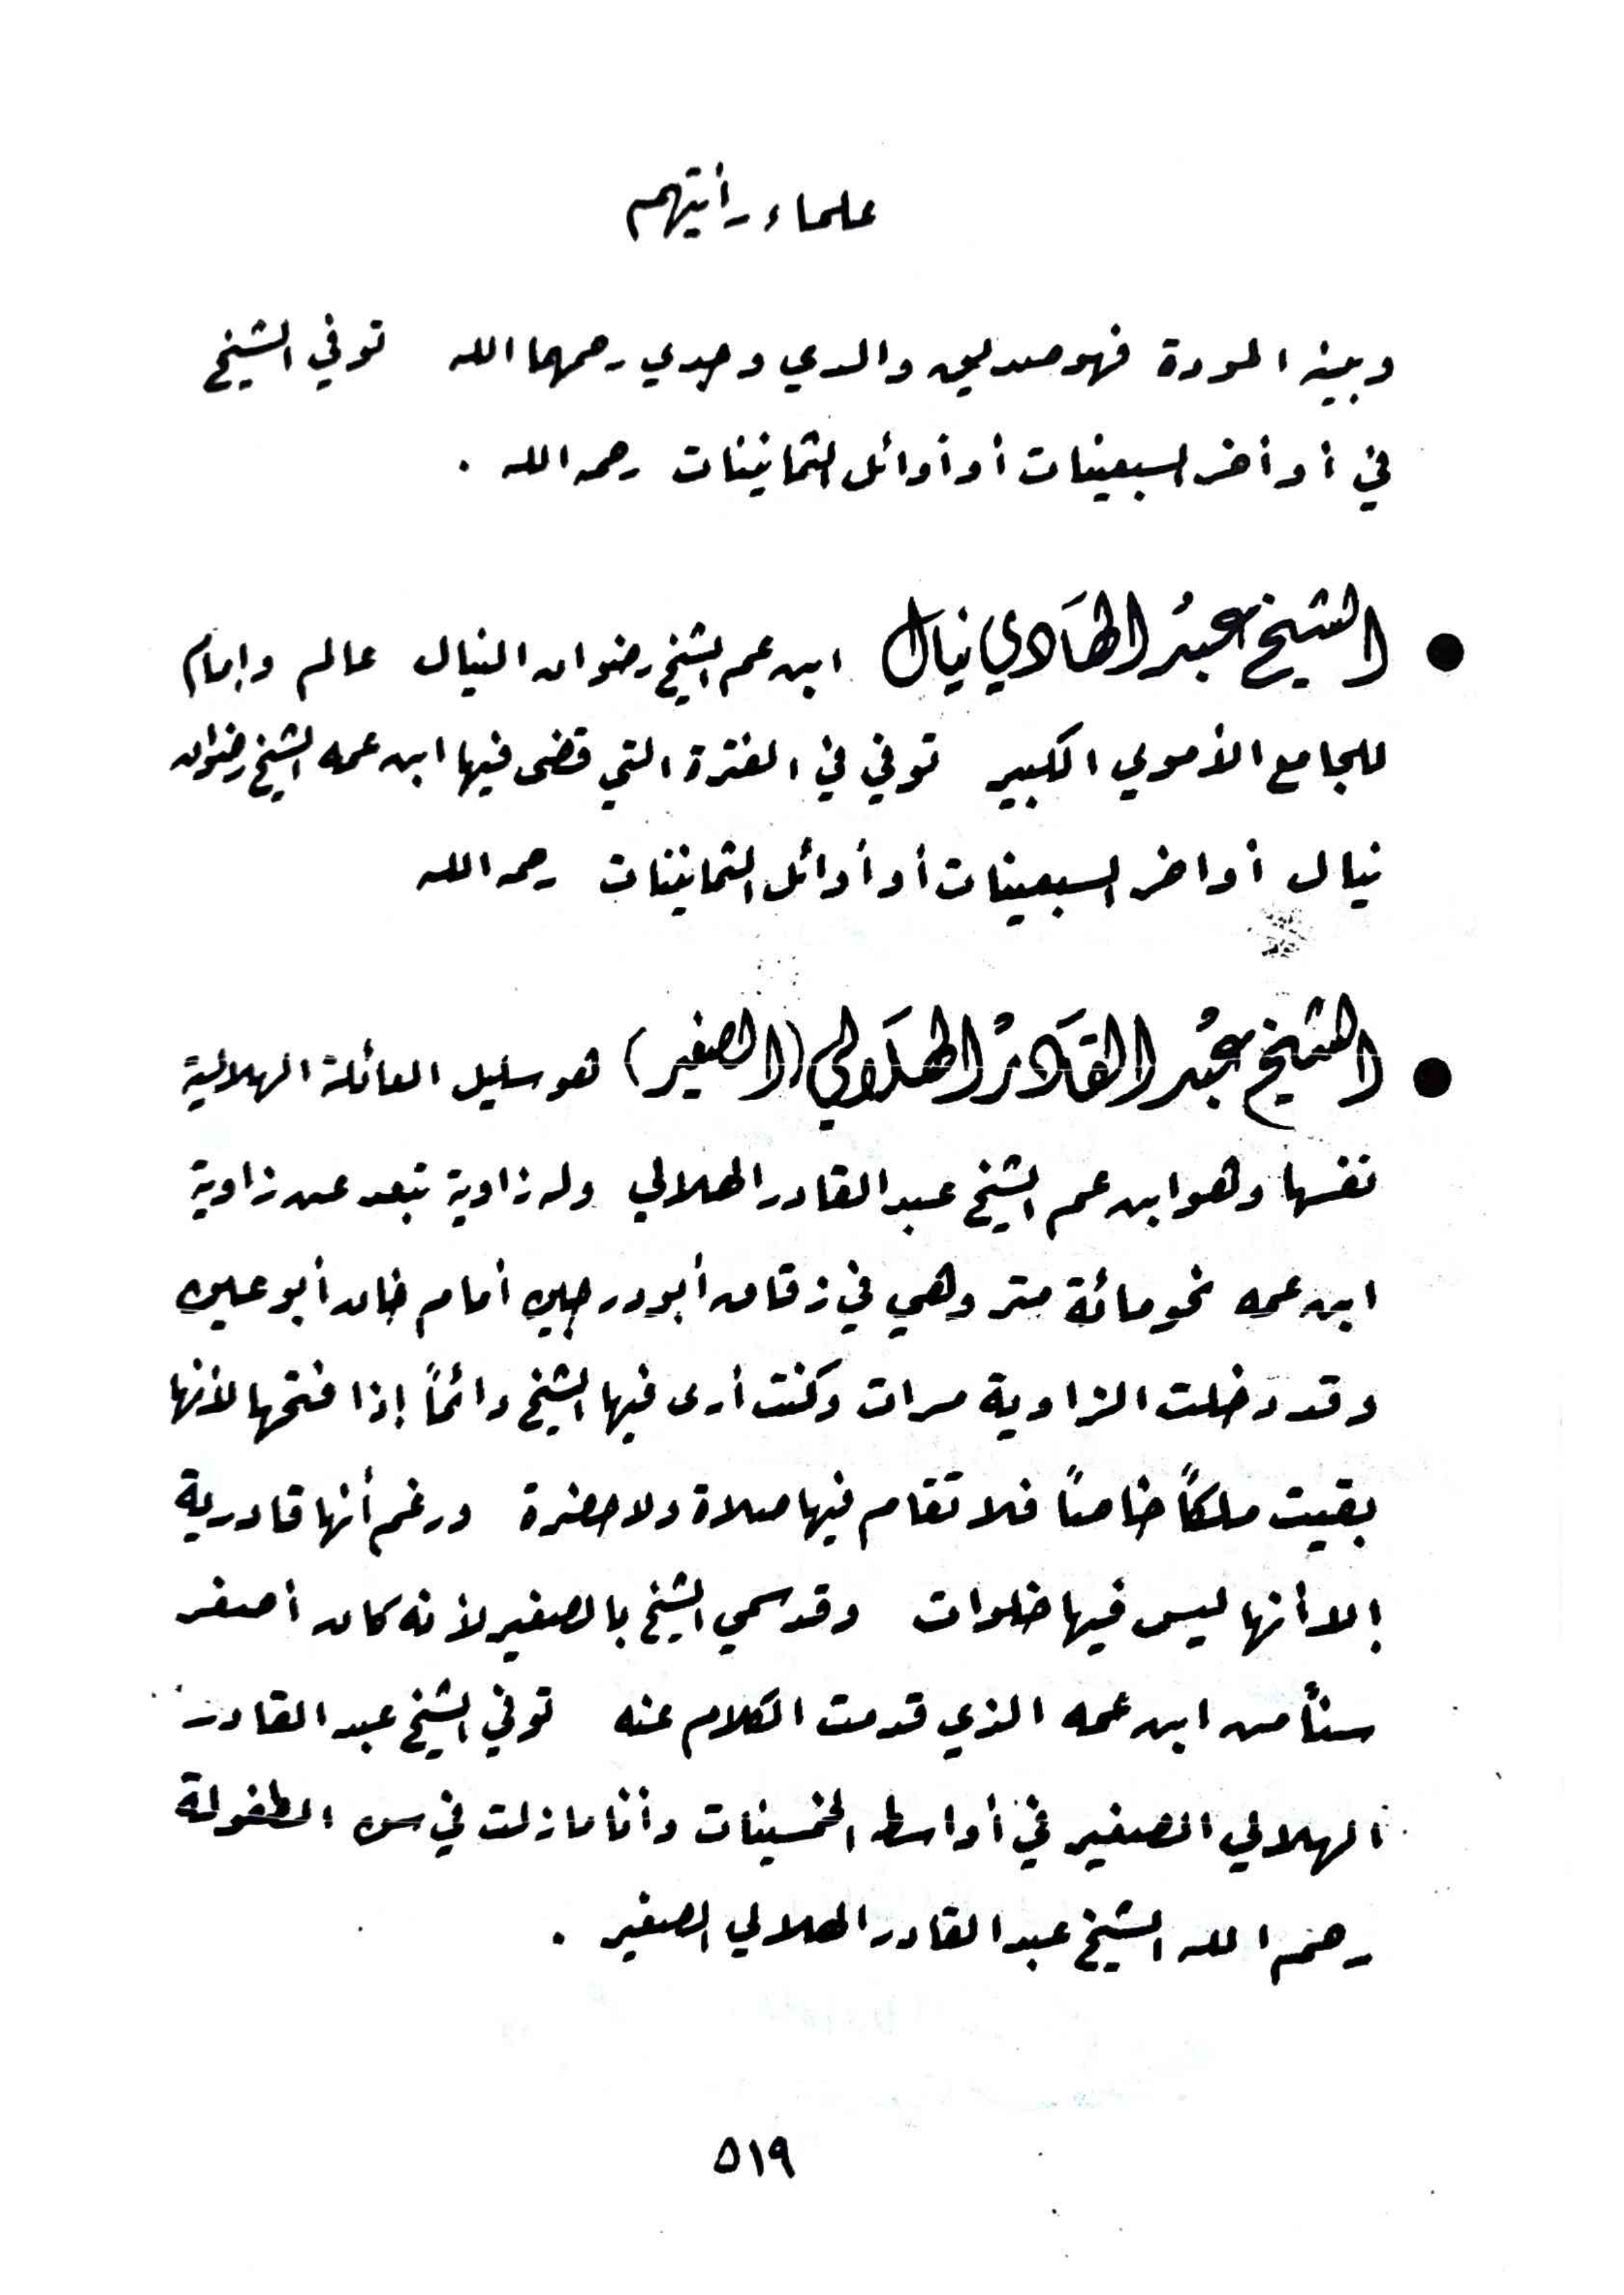 علماء رأيتهم
وبينه المودة فهو صديق والدي وجدي رحمهما الله توفي الشيخ
في أوآخر السبعينات أو أوائل الثمانينات رحمه الله .
● الشيخ عبد الهَادي نيال ابن عم الشيخ رضوان النيال عالم وإمام
للجامع الأموي الكبير توفي في الفترة التي قضى فيها ابن عمه الشيخ رضوان
نيال أواخر السبعينات أو أوائل الثمانينات رحمه الله
● الشيخ عبْد القَادرْ الهَلالي (الصغير) هو سليل العائلة الهلالية
نفسها وهو ابن عم الشيخ عبد القادر الهلالي وله زاوية تبعد عن زاوية
ابن عمه نحو مائة متر وهي في زقاق أبودرجين أمام خان أبو عين
وقد دخلت الزاوية مرات وكنت أرى فيها الشيخ دائماً إذا فتحها لأنها
بقيت ملكاً خاصاً فلا تقام فيها صلاة ولا حضرة ورغم أنها قادرية
إلا أنها ليس فيها خلوات وقد سمي الشيخ بالصغير لأنه كان أصغر
سناً من ابن عمه الذي قدمت الكلام عنه توفي الشيخ عبد القادر
الهلالي الصغير في أواسط الخمسينات وأنا مازلت في سن الطفولة
رحم الله الشيخ عبد القادر الهلالي الصغير .
٥١٩